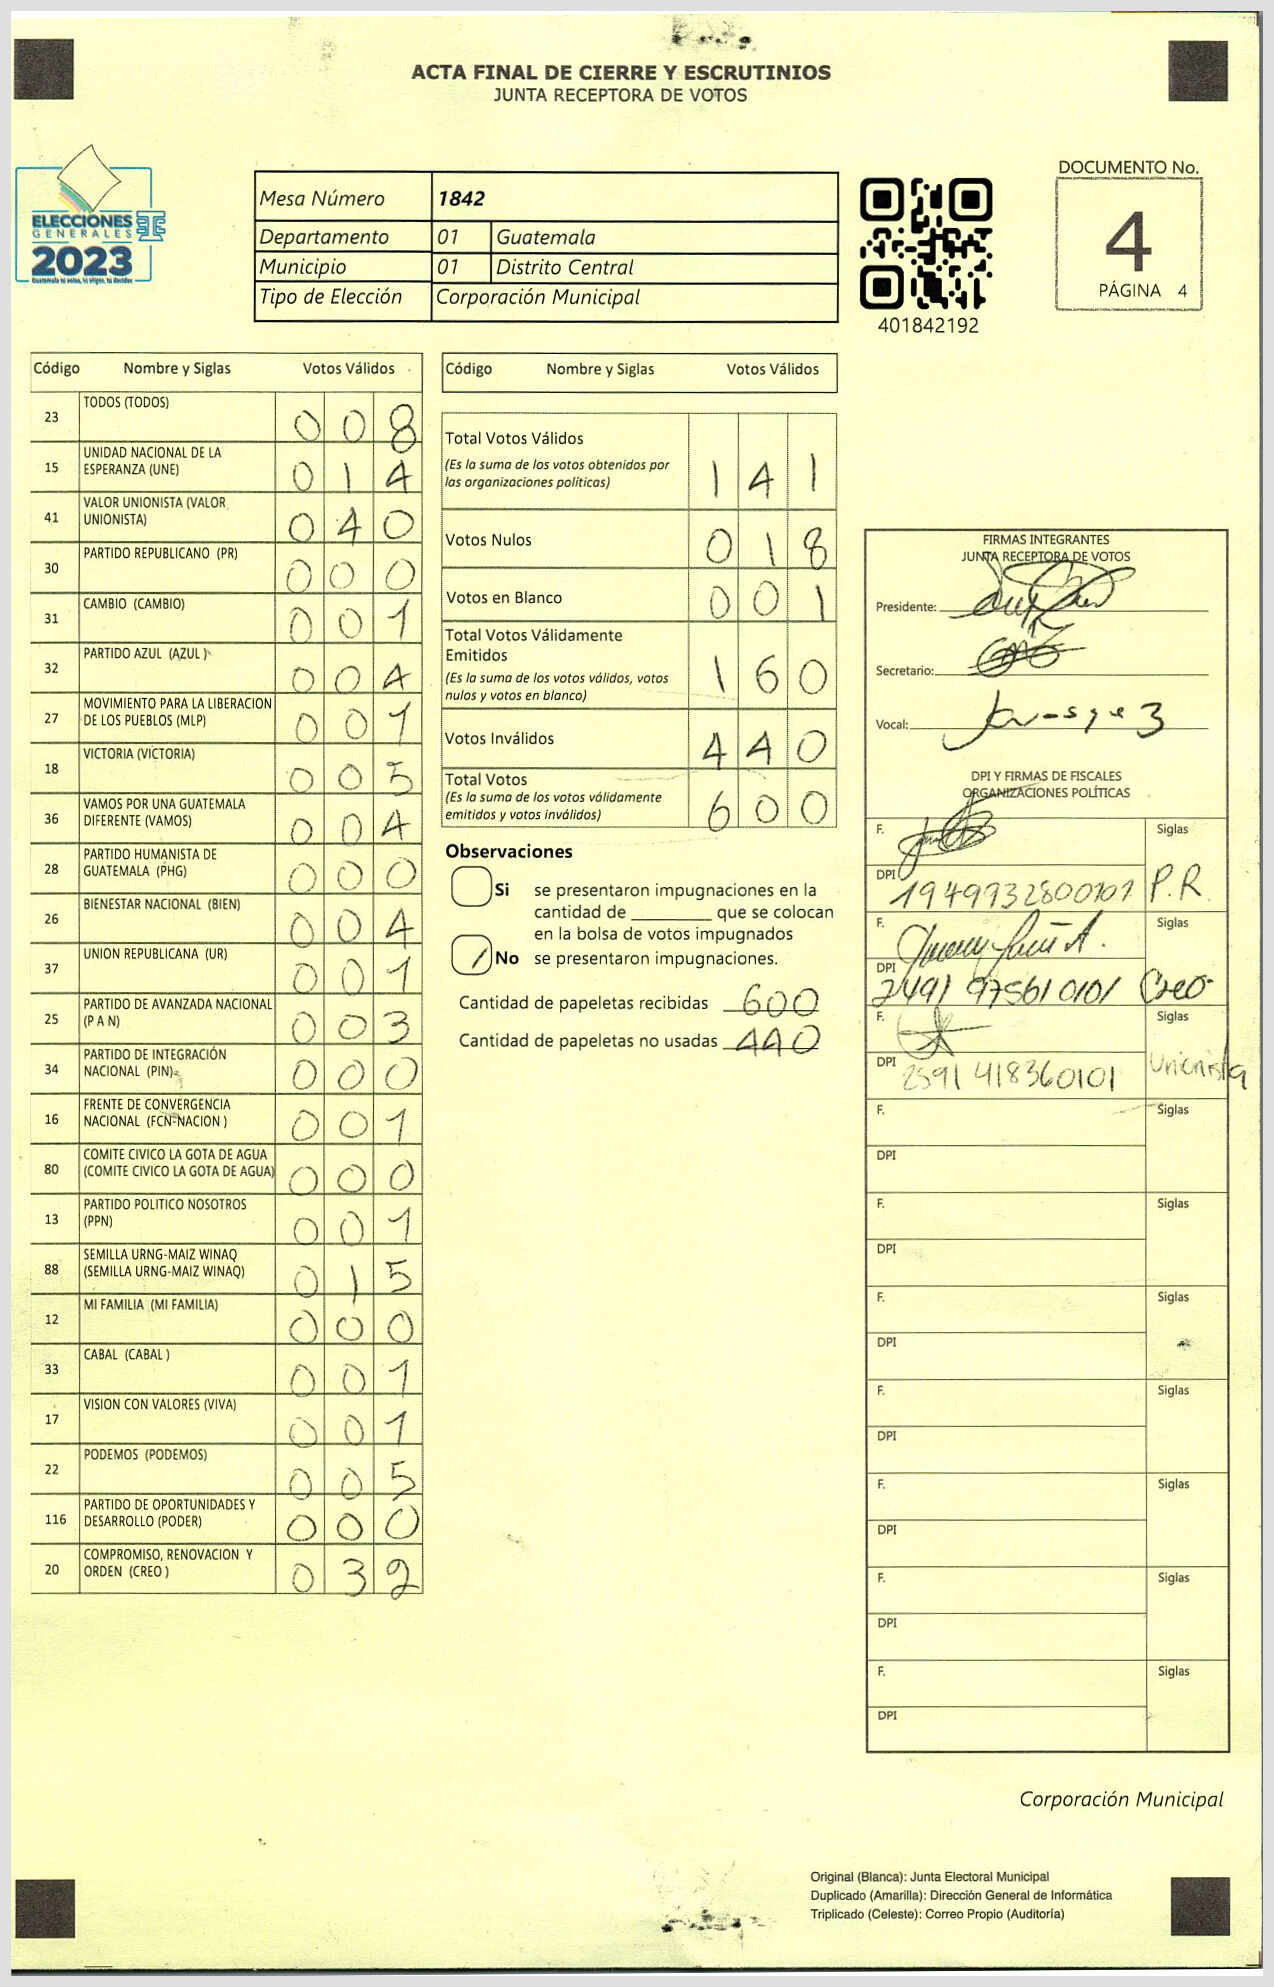 ACTA FINAL DE CIERRE Y ESCRUTINIOS
JUNTA RECEPTORA DE VOTOS
ELECCIONES
GENERALES
2023
Guatemala tú votas, tú eliges, tú decides
Mesa Número 1842
Departamento 01 Guatemala
Municipio 01 Distrito Central
Tipo de Elección Corporación Municipal
401842192
DOCUMENTO No.
4
PÁGINA 4
Código Nombre y Siglas Votos Válidos
23 TODOS (TODOS) 0 0 8
15 UNIDAD NACIONAL DE LA
ESPERANZA (UNE) 0 1 4
41 VALOR UNIONISTA (VALOR
UNIONISTA) 0 4 0
30 PARTIDO REPUBLICANO (PR) 0 0 0
31 CAMBIO (CAMBIO) 0 0 1
32 PARTIDO AZUL (AZUL ) 0 0 4
27 MOVIMIENTO PARA LA LIBERACION
DE LOS PUEBLOS (MLP) 0 0 1
18 VICTORIA (VICTORIA) 0 0 5
36 VAMOS POR UNA GUATEMALA
DIFERENTE (VAMOS) 0 0 4
28 PARTIDO HUMANISTA DE
GUATEMALA (PHG) 0 0 0
26 BIENESTAR NACIONAL (BIEN) 0 0 4
37 UNION REPUBLICANA (UR) 0 0 1
25 PARTIDO DE AVANZADA NACIONAL
(P A N) 0 0 3
34 PARTIDO DE INTEGRACIÓN
NACIONAL (PIN) 0 0 0
16 FRENTE DE CONVERGENCIA
NACIONAL (FCN-NACION ) 0 0 1
80 COMITE CIVICO LA GOTA DE AGUA
(COMITE CIVICO LA GOTA DE AGUA) 0 0 0
13 PARTIDO POLITICO NOSOTROS
(PPN) 0 0 1
88 SEMILLA URNG-MAIZ WINAQ
(SEMILLA URNG-MAIZ WINAQ) 0 1 5
12 MI FAMILIA (MI FAMILIA) 0 0 0
33 CABAL (CABAL ) 0 0 1
17 VISION CON VALORES (VIVA) 0 0 1
22 PODEMOS (PODEMOS) 0 0 5
116 PARTIDO DE OPORTUNIDADES Y
DESARROLLO (PODER) 0 0 0
20 COMPROMISO, RENOVACION Y
ORDEN (CREO ) 0 3 2
Código Nombre y Siglas Votos Válidos
Total Votos Válidos
(Es la suma de los votos obtenidos por
las organizaciones políticas) 1 4 1
Votos Nulos 0 1 8
Votos en Blanco 0 0 1
Total Votos Válidamente
Emitidos
(Es la suma de los votos válidos, votos
nulos y votos en blanco) 1 6 0
Votos Inválidos 4 4 0
Total Votos
(Es la suma de los votos válidamente
emitidos y votos inválidos) 6 0 0
Observaciones
Si se presentaron impugnaciones en la
cantidad de ________ que se colocan
en la bolsa de votos impugnados
No se presentaron impugnaciones.
Cantidad de papeletas recibidas 600
Cantidad de papeletas no usadas 440
FIRMAS INTEGRANTES
JUNTA RECEPTORA DE VOTOS
Presidente:
Secretario:
Vocal:
DPI Y FIRMAS DE FISCALES
ORGANIZACIONES POLÍTICAS
F. Siglas
DPI 1949932800101 P.R.
F. Siglas
DPI 2491 97561 0101 Creo
F. Siglas
DPI 2591 418360101 Unionista
F. Siglas
DPI
F. Siglas
DPI
F. Siglas
DPI
F. Siglas
DPI
F. Siglas
DPI
F. Siglas
DPI
F. Siglas
DPI
Corporación Municipal
Original (Blanca): Junta Electoral Municipal
Duplicado (Amarilla): Dirección General de Informática
Triplicado (Celeste): Correo Propio (Auditoría)